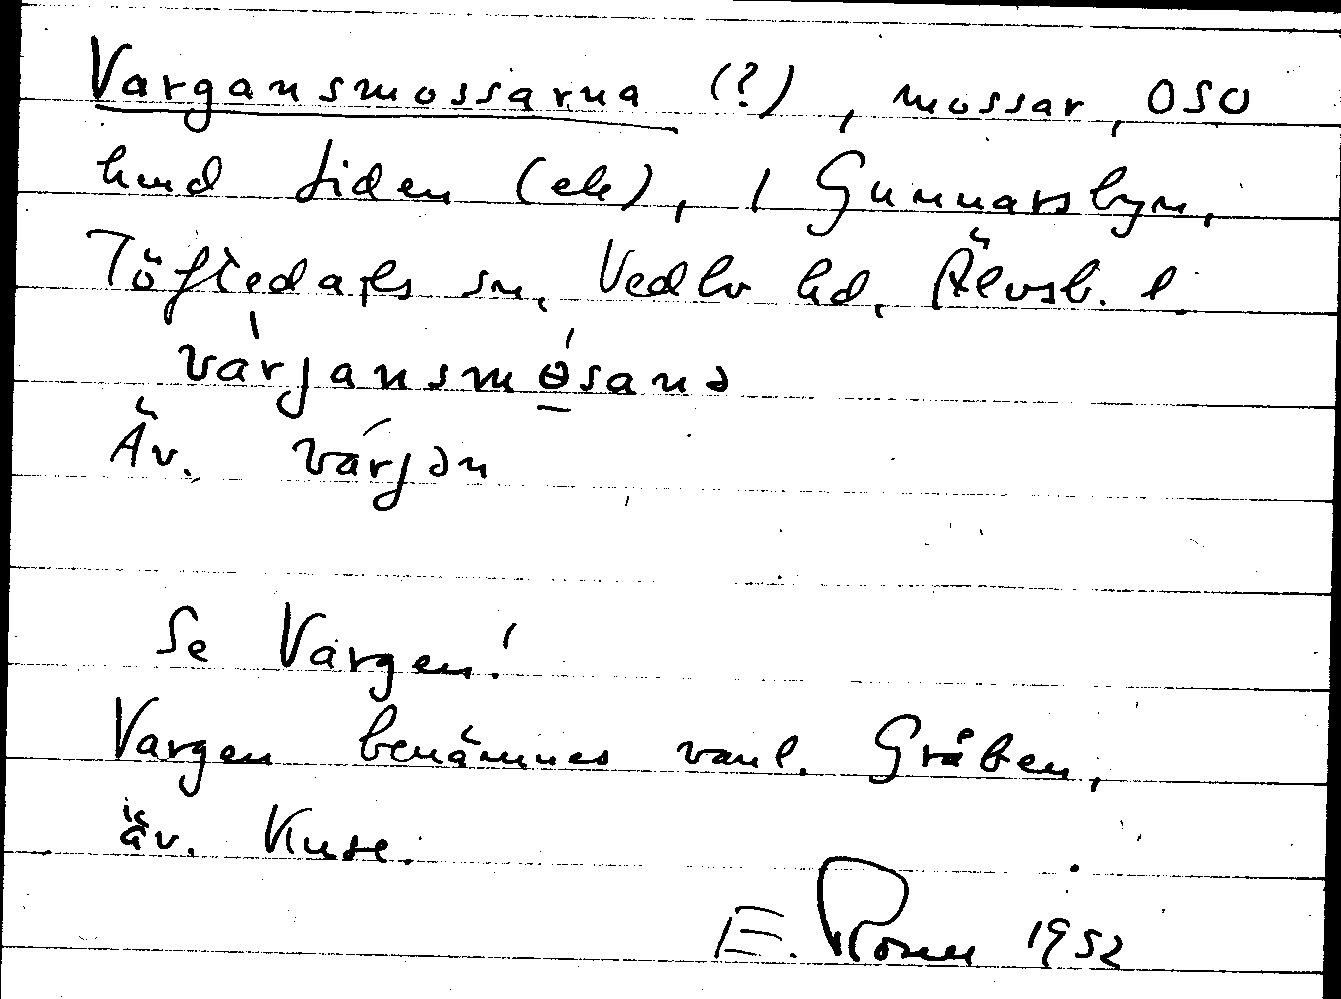 Vargansmossarna (?), mossar, OSO
hmd Liden (ek), 1 Gunnarsbyn,
Töftedals sn, Vedbo hd, Älvsb. l.
várjansmɵ́sanə
Äv. várjən
Se Vargen!
Vargen benämnes vanl. Gråben,
äv. Kuse.
E. Rosell 1952